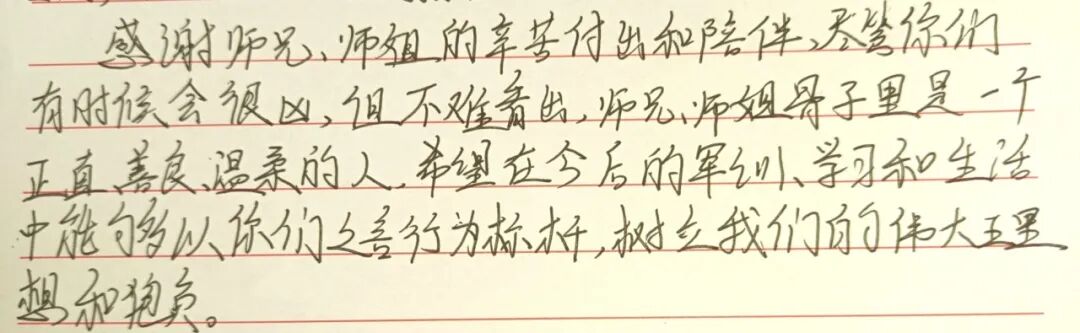 感谢师兄、师姐的辛苦付出和陪伴,尽管你们
有时候会很凶,但不难看出,师兄、师姐骨子里是一个
正直、善良、温柔的人。希望在今后的军训、学习和生活
中能够以你们之言行为标杆,树立我们的伟大理
想和抱负。